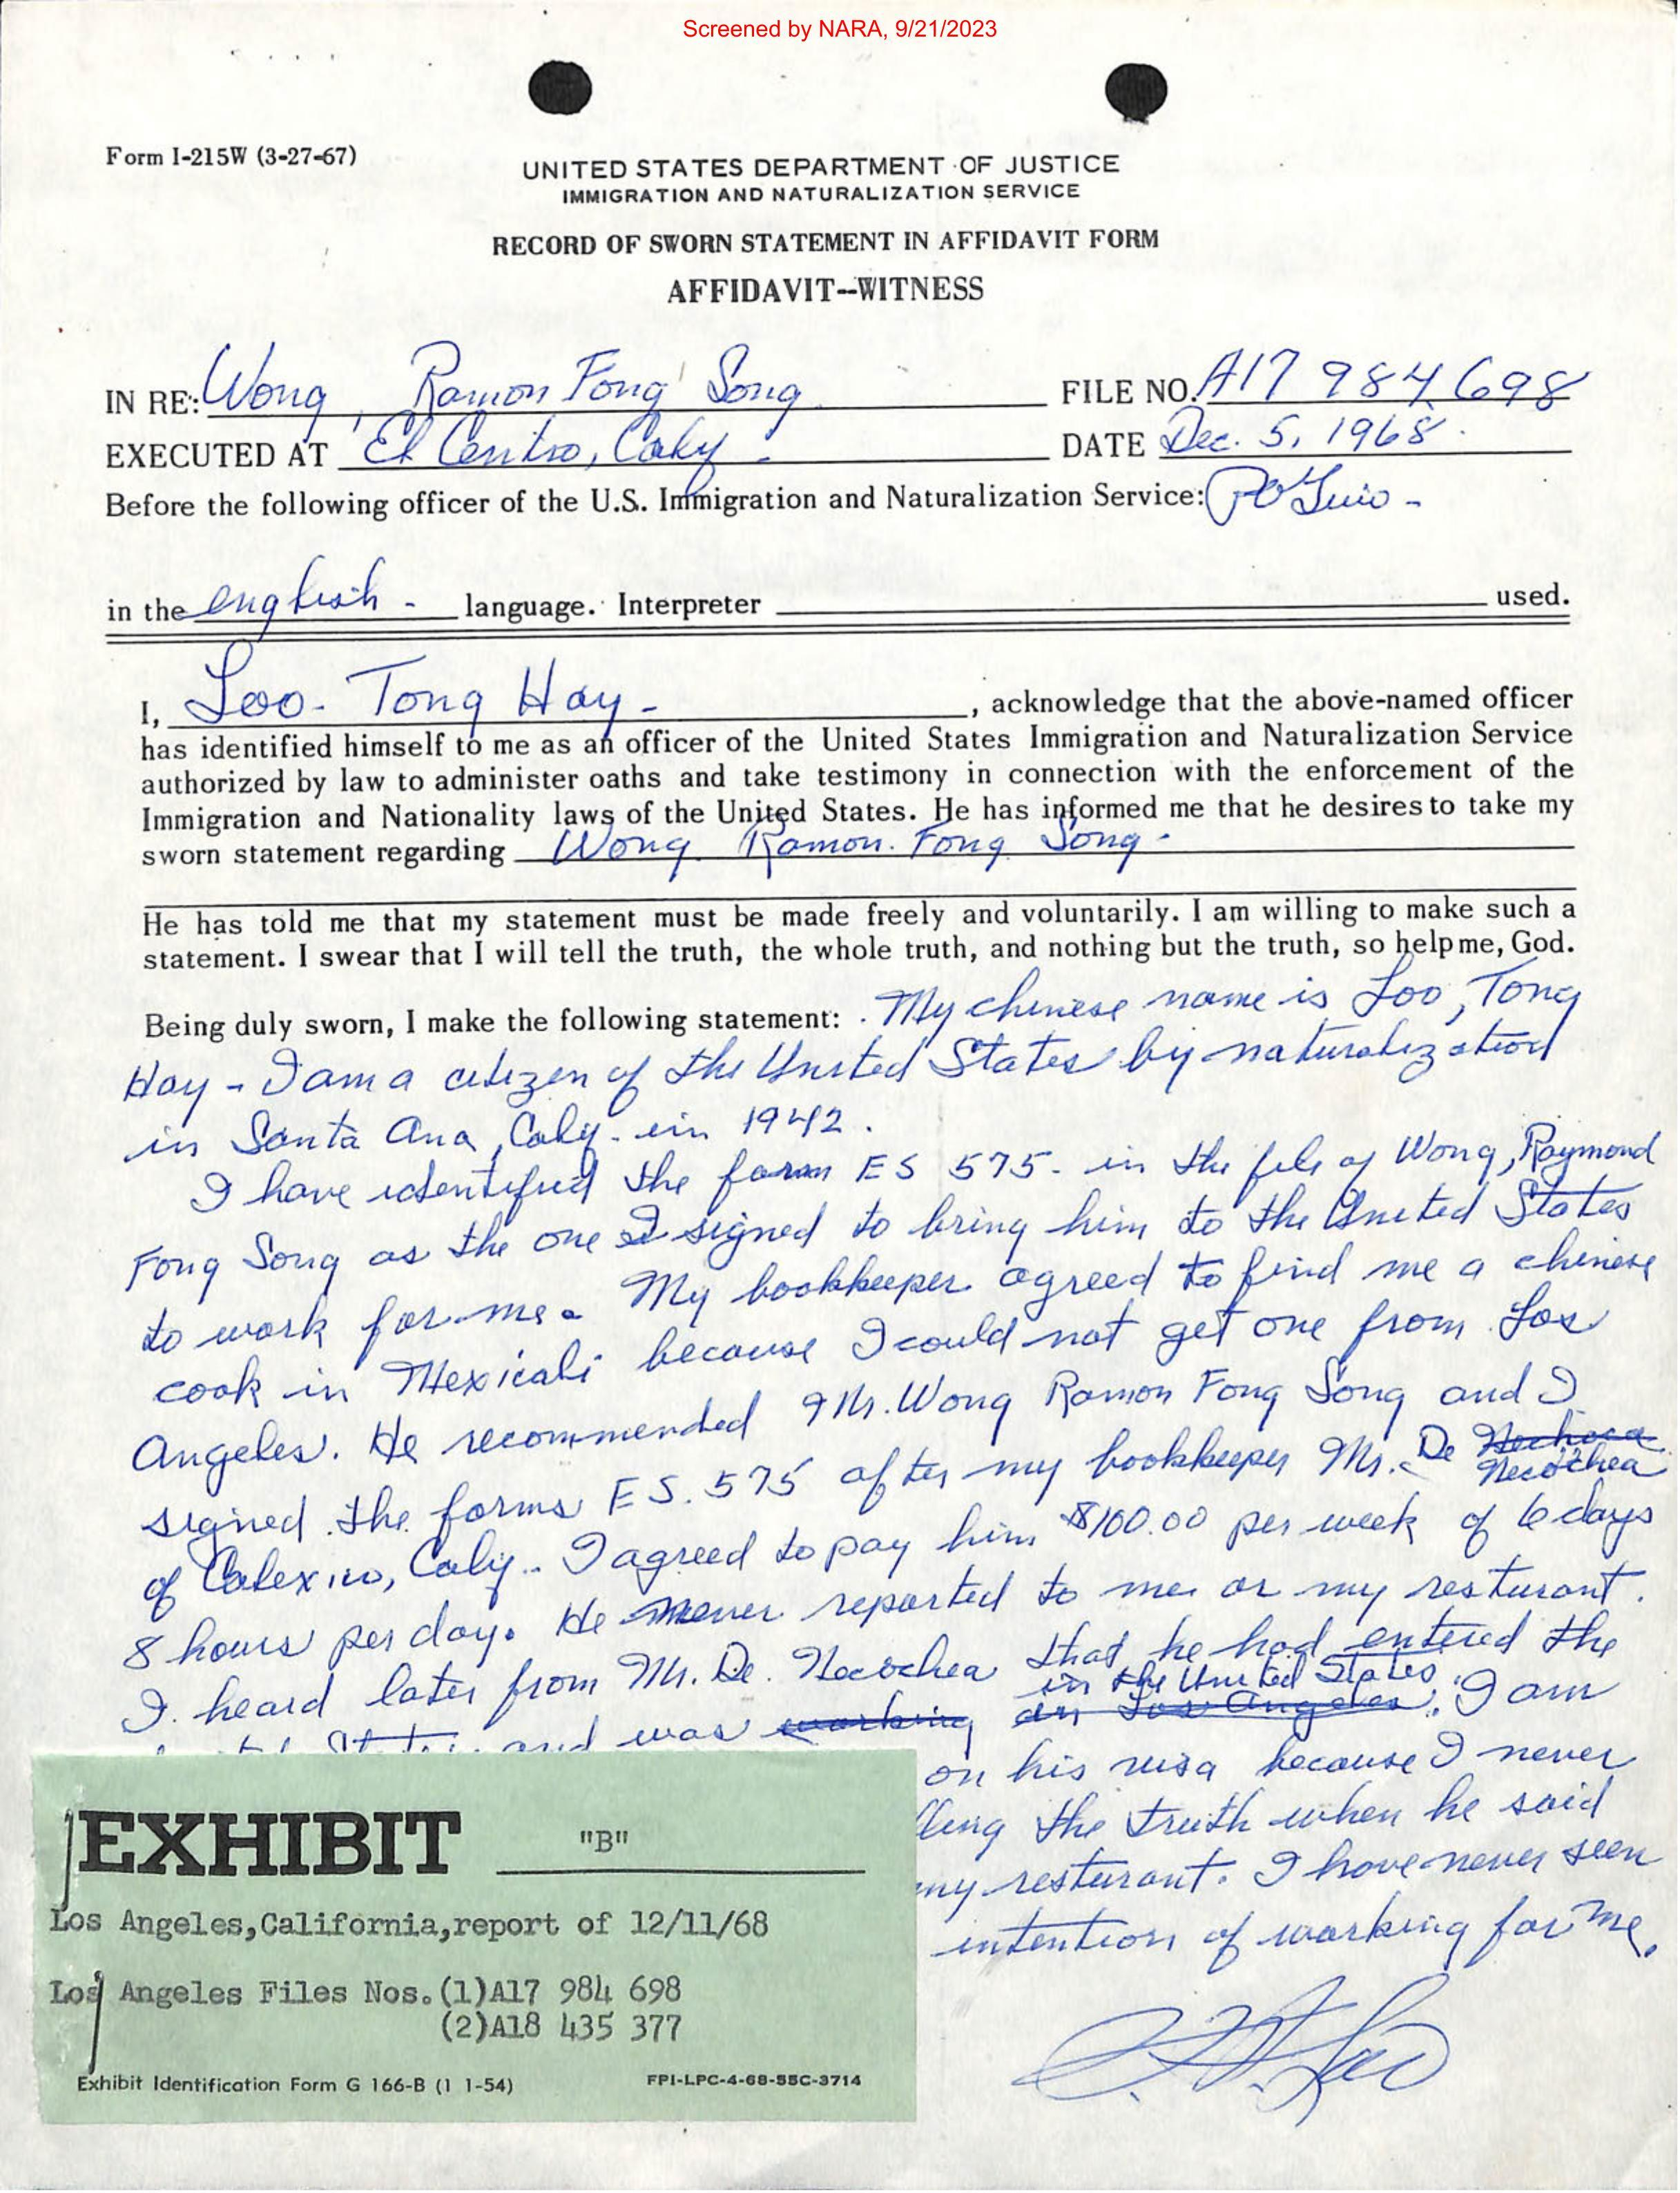 Screened by NARA, 9/21/2023
Form I-215W (3-27-67)
UNITED STATES DEPARTMENT OF JUSTICE
IMMIGRATION AND NATURALIZATION SERVICE
RECORD OF SWORN STATEMENT IN AFFIDAVIT FORM
AFFIDAVIT--WITNESS
IN RE: Wong, Ramon Fong Song FILE NO. A17 984 698
EXECUTED AT El Centro, Calif. DATE Dec. 5, 1968.
Before the following officer of the U.S. Immigration and Naturalization Service:
in the english - language. Interpreter used.
I, Loo - Tong Hay - , acknowledge that the above-named officer
has identified himself to me as an officer of the United States Immigration and Naturalization Service
authorized by law to administer oaths and take testimony in connection with the enforcement of the
Immigration and Nationality laws of the United States. He has informed me that he desires to take my
sworn statement regarding Wong Ramon Fong Song -
He has told me that my statement must be made freely and voluntarily. I am willing to make such a
statement. I swear that I will tell the truth, the whole truth, and nothing but the truth, so help me, God.
Being duly sworn, I make the following statement: My chinese name is Loo, Tong
Hay - I am a citizen of the United States by naturalization
in Santa Ana, Calif. in 1942.
I have identified the form ES 575 - in the file of Wong, Raymond
Fong Song as the one I signed to bring him to the United States
to work for me. My bookkeeper agreed to find me a chinese
cook in Mexicali because I could not get one from Los
Angeles. He recommended Mr. Wong Ramon Fong Song and I
signed the forms ES. 575 after my bookkeeper Mr. De Necochea
of Calexico, Calif. I agreed to pay him $100.00 per week of 6 days
8 hours per day. He never reported to me or my resturant.
I heard later from Mr. De Necochea that he had entered the
in the United States.
and was working in Los Angeles. I am
on his visa because I never
lling the truth when he said
my resturant. I have never seen
intention of working for me.
EXHIBIT "B"
Los Angeles,California,report of 12/11/68
Los Angeles Files Nos.(1)A17 984 698
(2)A18 435 377
Exhibit Identification Form G 166-B (1 1-54) FPI-LPC-4-68-55C-3714